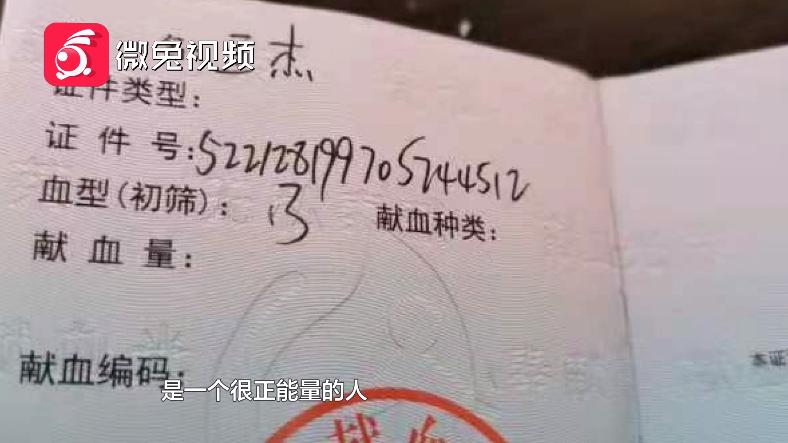 微兔视频
杰
证件类型：
证 件 号：522128199705244512
血型(初筛)：B 献血种类：
献 血 量：
献血编码：
本证
是一个很正能量的人
献血